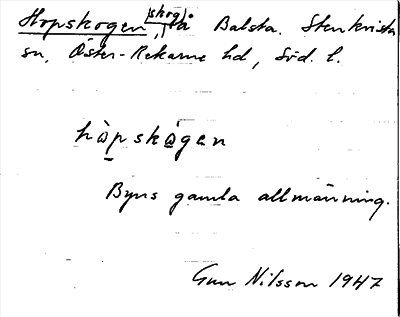 Hopskogen, skog på Balsta. Stenkvista
sn, Öster-Rekarne hd, Söd. l.
hòpskågen
Byns gamla allmänning.
Gun Nilsson 1947